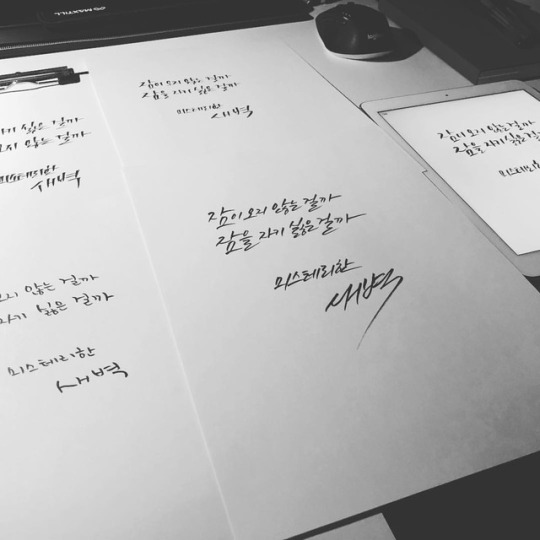 MAXTILL
싫은 걸까
않는 걸까
미스테리한
새벽
않는 걸까
자기 싫은 걸까
미스테리한
새벽
잠이 오지 않는 걸까
잠을 자기 싫은 걸까
미스테리한
새벽
잠이 오지 않는 걸까
잠을 자기 싫은 걸까
미스테리한
새벽
잠이 오지 않는 걸까
잠을 자기 싫은 걸
미스테리